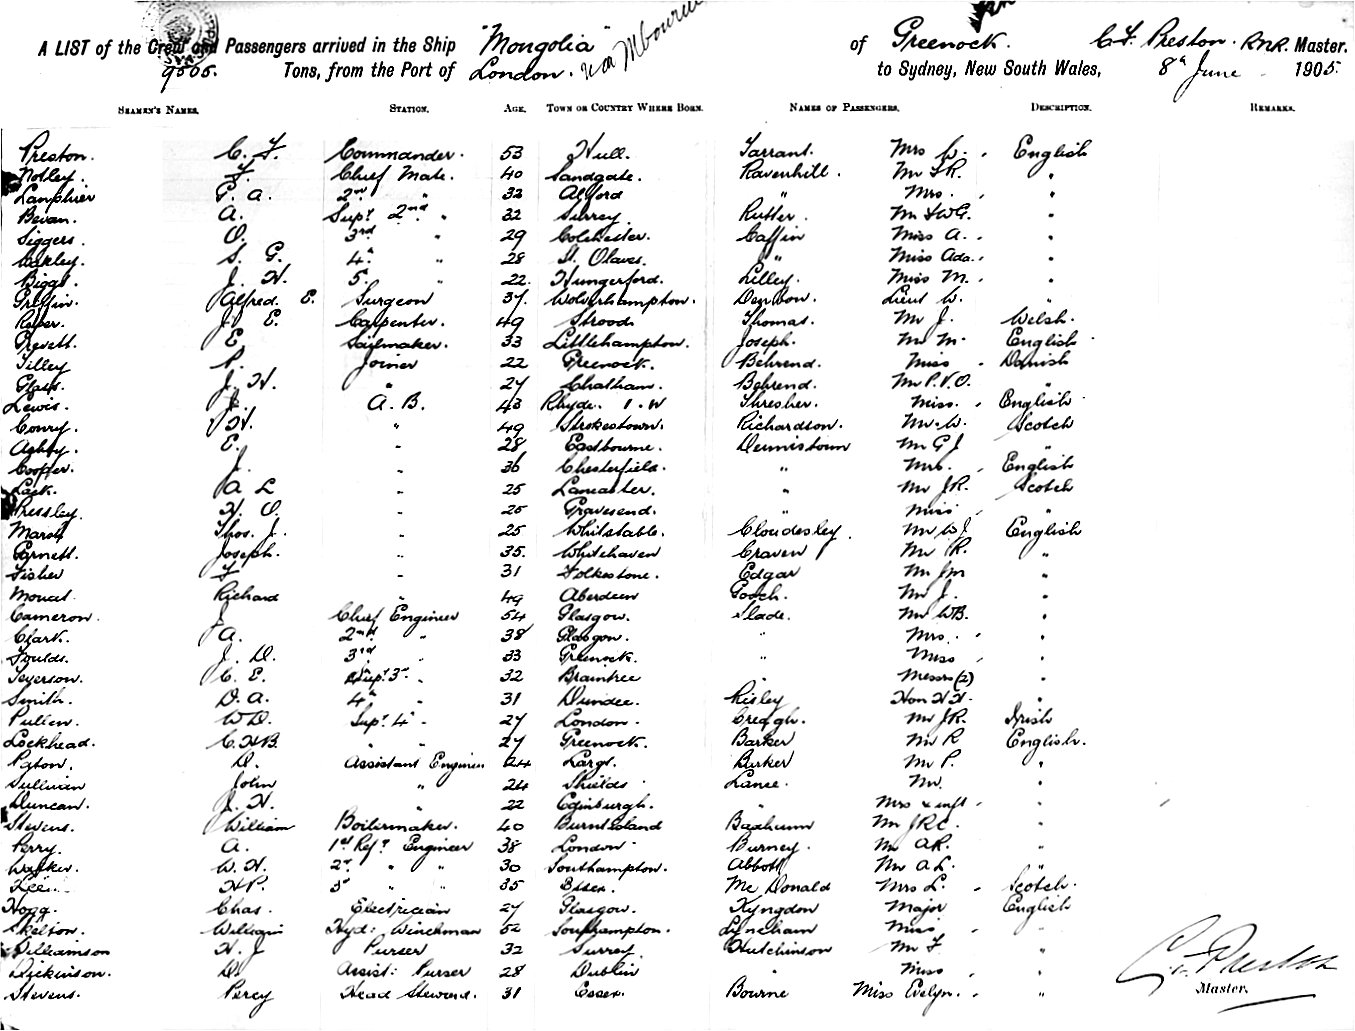 A LIST of the Crew and Passengers arrived in the Ship "Mongolia" of Greenock. C. F. Preston. RNR. Master.
9505. Tons, from the Port of London. via Mbourne to Sydney, New South Wales, 8th June 1905.
SEAMEN'S NAMES. STATION. AGE. TOWN OR COUNTRY WHERE BORN. NAMES OF PASSENGERS. DESCRIPTION. REMARKS.
Preston. C. F. Commander. 53 Hull. Tarrant. Mrs W. English
Notley. F. Chief Mate. 40 Sandgate. Ravenhill. Mr F.R. "
Lamphier G. A. 2nd " 32 Alford " Mrs. "
Bevan. A. Supy 2nd " 32 Surrey. Rutter. Mr F.W.G. "
Siggers. O. 3rd " 29 Colchester. Caffin Miss A. "
Oakley. S. G. 4th " 28 St. Olaves. " Miss Ada. "
Biggs. J. H. 5 " 22. Hungerford. Lilley. Miss M. "
Griffin. Alfred E. Surgeon 37. Wolverhampton. Denison. Lieut W. "
Roper. J. E. Carpenter. 49 Strood. Thomas. Mr J. Welsh.
Prevett. E. Sailmaker. 33 Littlehampton. Joseph. Mr M. English
Tilley R. Joiner 22 Greenock. Behrend. Miss Danish
Glass. J. H. " 27 Chatham. Behrend. Mr P.V.O. "
Lewis. J. A. B. 43 Rhyde. I. W Thresher. Miss. English
Conry. H. " 49 Strokestown. Richardson. Mr W. Scotch
Ashby. E. " 28 Eastbourne. Dennistoun Mr G J "
Cooper. J. " 36 Chesterfield. " Mrs. English
Lack. A L " 25 Lancaster. " Mr J.R. Scotch
Pressley. H. O. " 25 Gravesend. " Miss "
Marsh Thos. J. " 25 Whitstable. Cloudesley. Mr W J English
Garnett. Joseph. " 35. Whitehaven Craven Mr R. "
Fisher F " 31 Folkestone. Edgar Mr J M "
Mouat. Richard " 49 Aberdeen Gooch. Mr J. "
Cameron. J. Chief Engineer 54 Glasgow. Slade. Mr W.B. "
Clark. A. 2nd " 38 Glasgow. " Mrs. "
Foulds. J. D. 3rd " 33 Greenock. " Miss "
Teverson. C. E. Supy 3rd " 32 Braintree " Messrs (2) "
Smith. D. A. 4th " 31 Dundee. Risley Hon H.H. "
Pullen. W D. Supy 4 " 27 London. Creagh. Mr J.R. Irish
Lockhead. C. H B. " " 27 Greenock. Barker Mr R English.
Paton. D. Assistant Engineer 24 Largs. Barker Mr P. "
Sullivan John " 24 Shields Lance. Mr. "
Duncan. J. H. " 22 Edinburgh. " Mrs & inft "
Stevens. William Boilermaker. 40 Burntisland Badham Mr J R C. "
Perry. A. 1st Refr Engineer 38 London Burney. Mr A.R. "
Walker W. H. 2nd " " 30 Southampton. Abbott Mr A L. "
Lee H P. 3rd " " 35 Essex. Mc Donald Mrs L. Scotch.
Hogg. Chas. Electrician 27 Glasgow. Kyngdon Major English
Skelton. William Hyd: Winchman 52 Southampton. Lyneham Miss "
Williamson H. J Purser 32 Surrey. Hutchinson Mr F. "
Dickinson. D. Assist: Purser 28 Dublin " Miss "
Stevens. Percy Head Steward. 31 Essex. Bourne Miss Evelyn. "
C. F. Preston
Master.